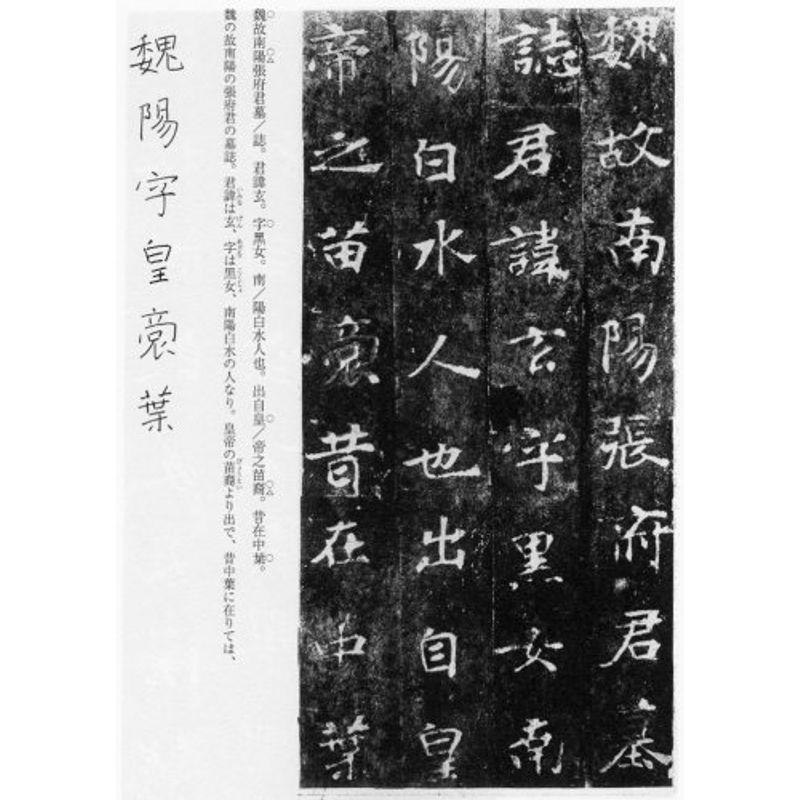 魏故南陽張府君墓
誌君諱玄字黑女南
陽白水人也出自皇
帝之苗裔昔在中葉
魏故南陽張府君墓/誌。君諱玄。字黑女。南/陽白水人也。出自皇/帝之苗裔。昔在中葉。
魏の故南陽の張府君の墓誌。君諱は玄、字は黒女、南陽白水の人なり。皇帝の苗裔より出で、昔中葉に在りては、
魏陽字皇裔葉